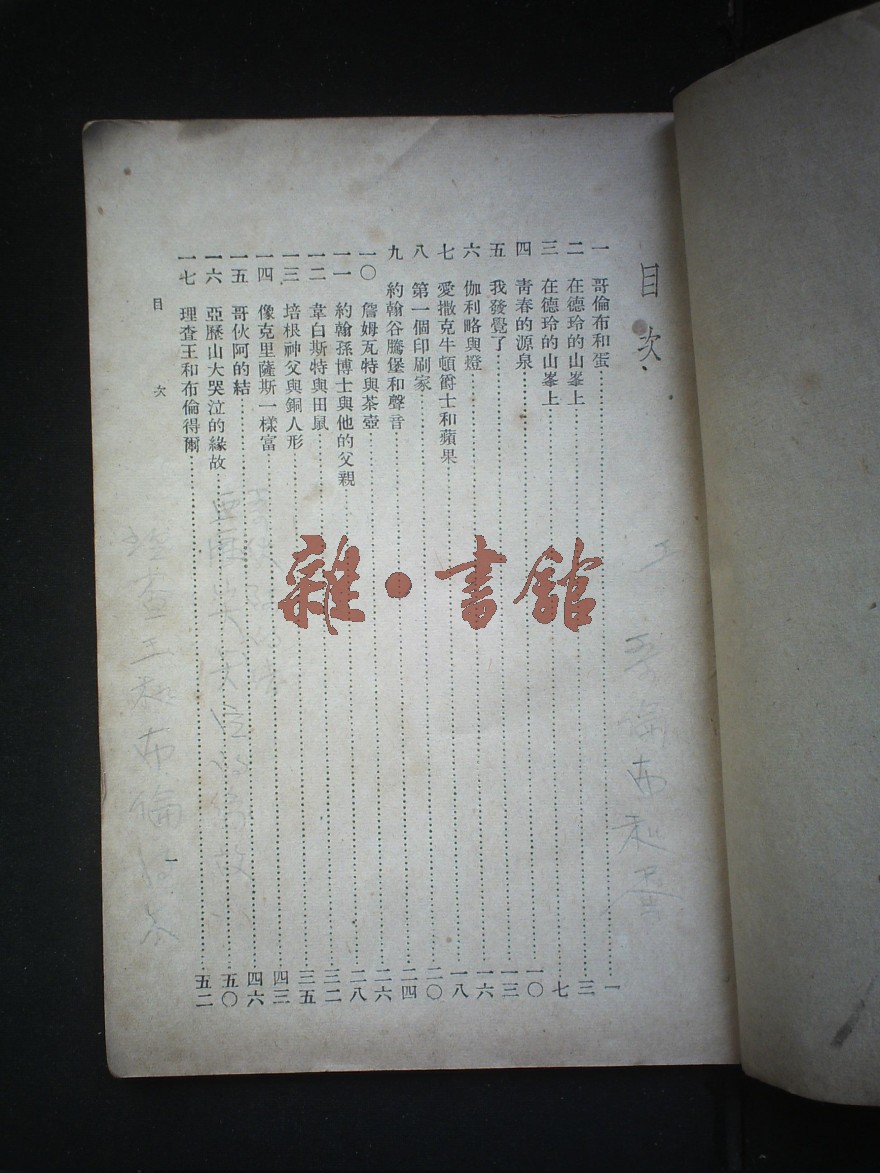 目次
一 哥倫布和蛋 一
二 在德玲的山峯上 三
三 在德玲的山峯上 七
四 靑春的源泉 一〇
五 我發覺了 一三
六 伽利略與燈 一六
七 愛撒克牛頓爵士和蘋果 一八
八 第一個印刷家 二〇
九 約翰谷騰堡和聲音 二四
一〇 詹姆瓦特與茶壺 二六
一一 約翰孫博士與他的父親 二八
一二 韋白斯特與田鼠 三二
一三 培根神父與銅人形 三五
一四 像克里薩斯一樣富 四三
一五 哥伙阿的結 四六
一六 亞歷山大哭泣的緣故 五〇
一七 理查王和布倫得爾 五二
目次
一
雜·書館
哥倫布和蛋
理查王和布倫